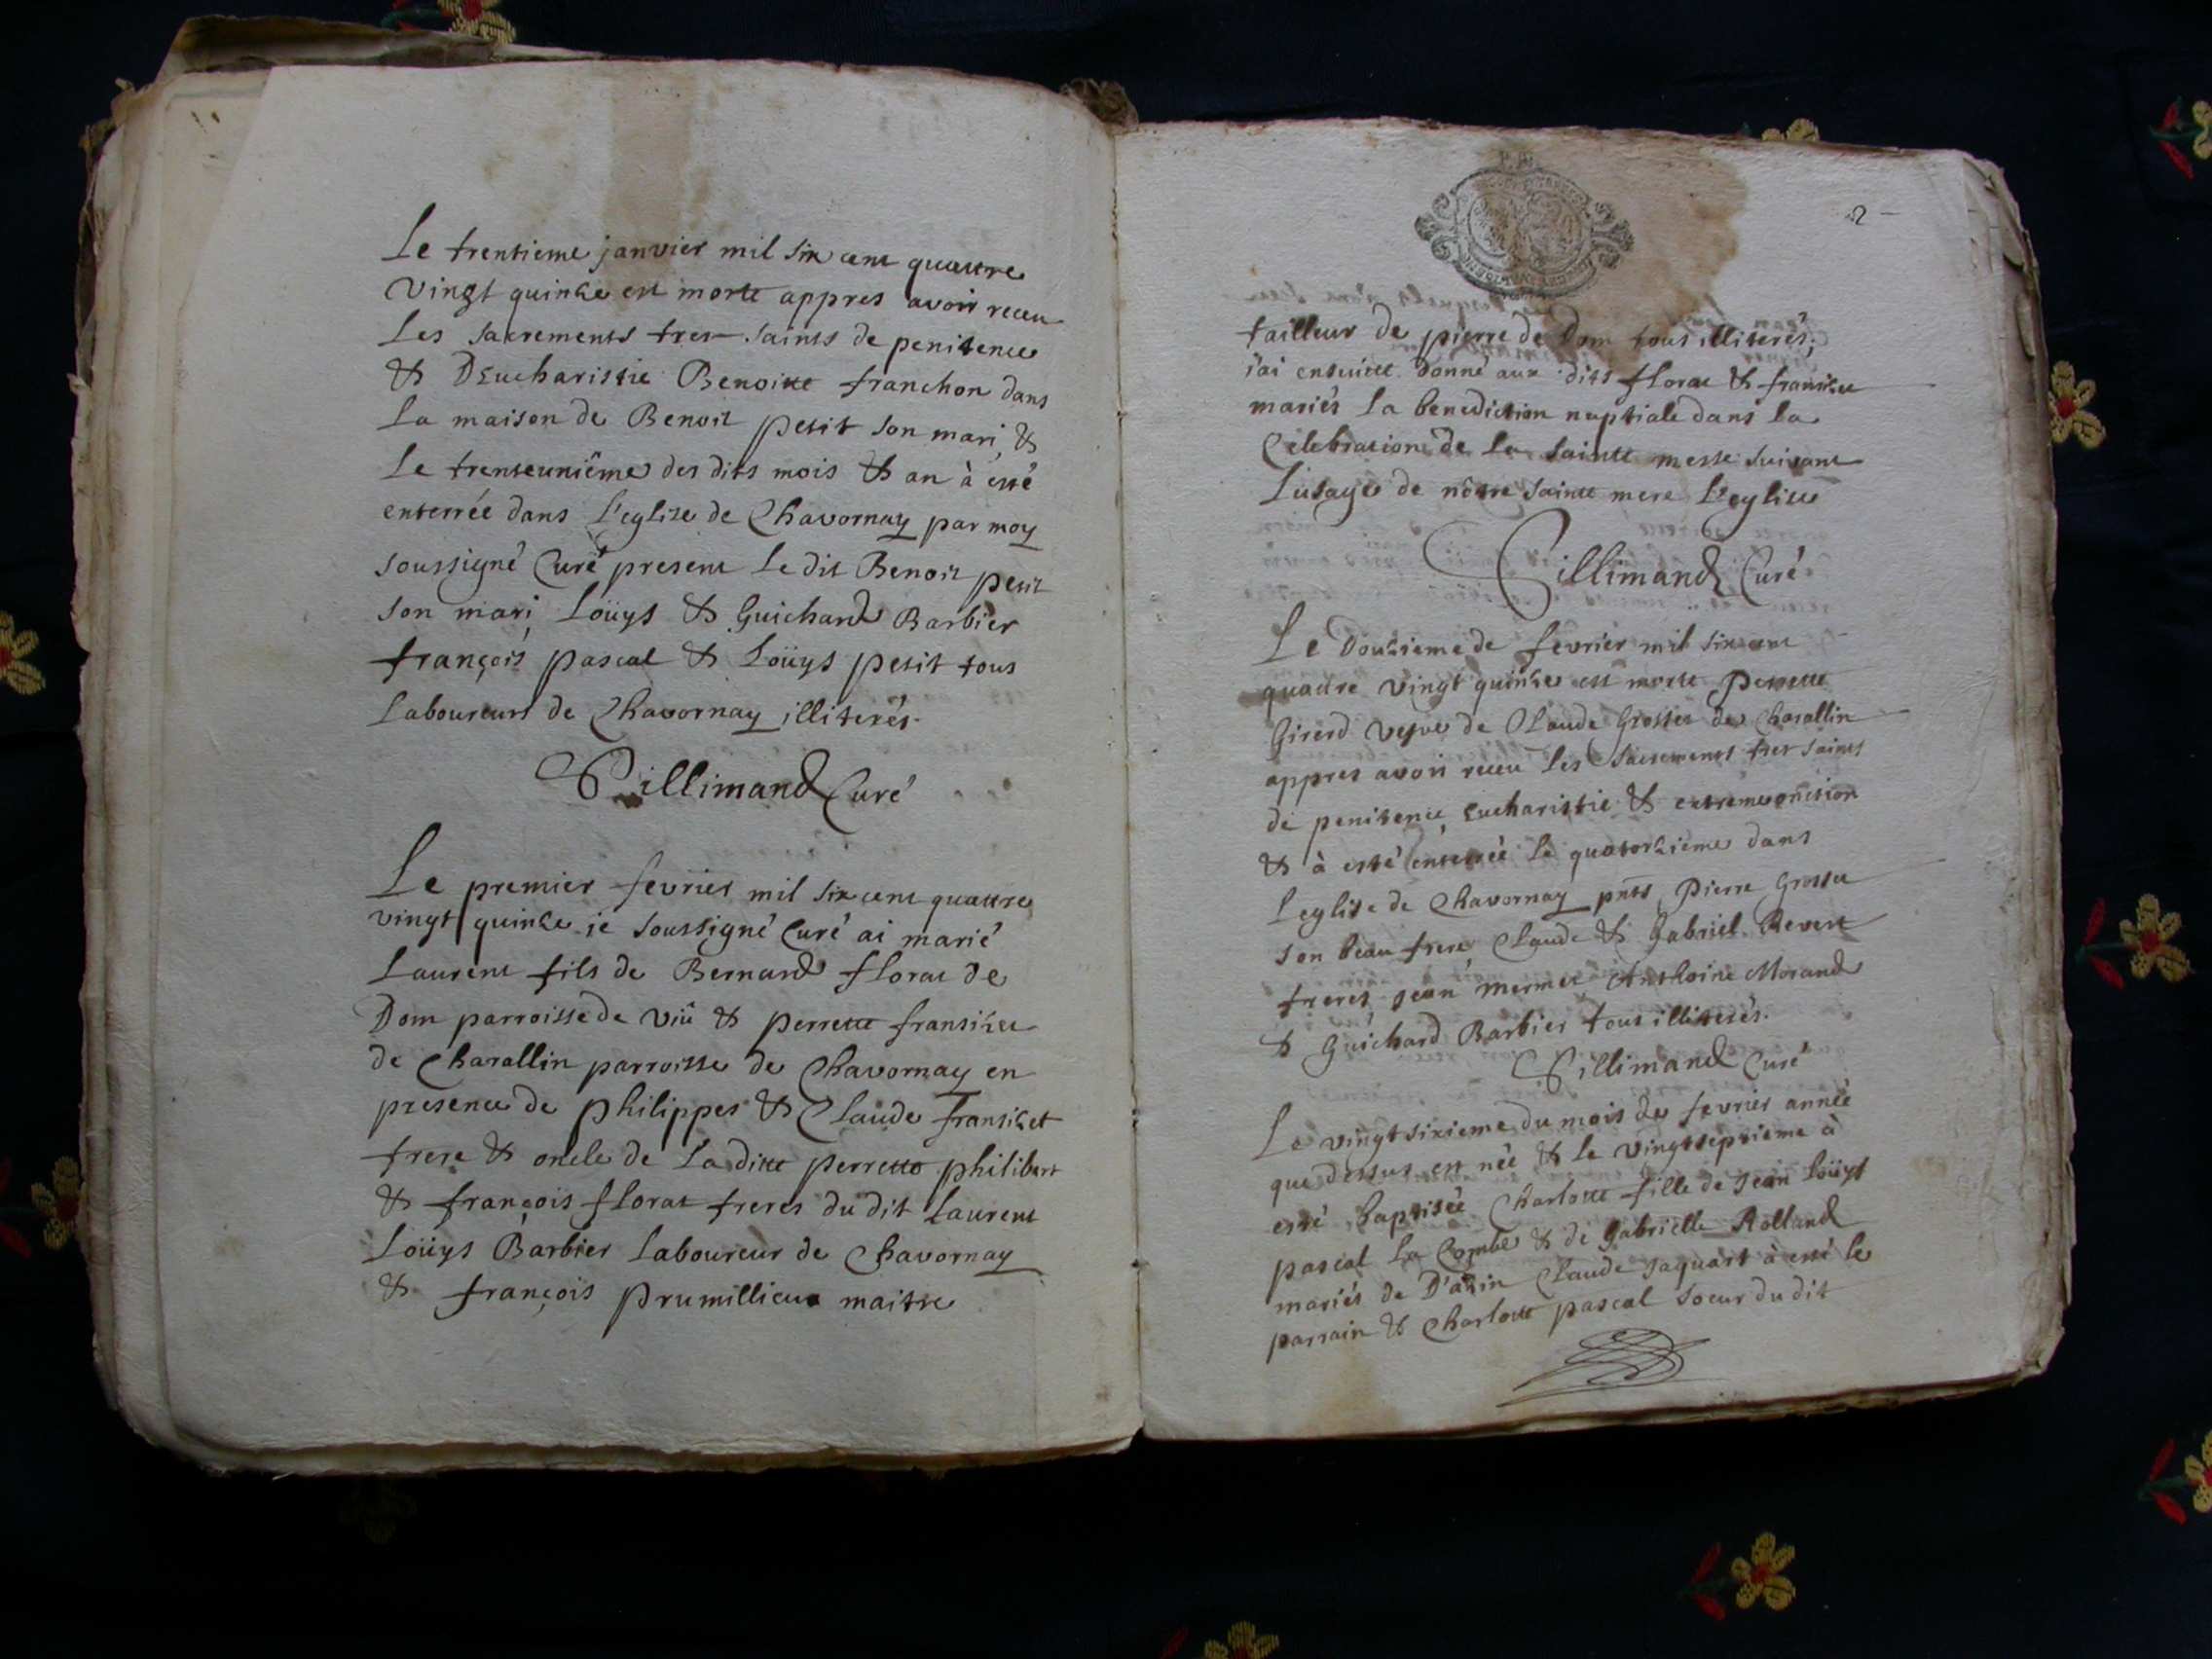 Le trentieme janvier mil six cent quattre
vingt quinze est morte appres avoir receu
Les sacrements tres saints de penitence
& DEucharistie Benoitte franchon dans
La maison de Benoit petit son mari, &
Le trenteuniême des dits mois & an à esté
enterrée dans L'eglise de Chavornay par moy
soussigné Curé present Le dit Benoit petit
son mari, Loüys & Guichard Barbier
françois pascal & Loüys petit tous
Laboureurs de Chavornay illiterés.
Pillimand Curé
Le premier fevrier mil six cent quattre
vingt quinze je soussigné Curé ai marié
Laurent fils de Bernard florat de
Dom parroisse de viû & perrette fransizet
de Charallin parroisse de Chavornay en
presence de philippes & Claude fransizet
frere & oncle de La ditte perrette philibert
& françois florat freres du dit Laurent
Loüys Barbier Laboureur de Chavornay
& françois prumillieux maitre
2
tailleur de pierre de Dom tous illiterés;
j'ai ensuitte donné aux dits florat & fransizet
mariés la benediction nuptiale dans la
Celebration de la sainte messe suivant
L'usage de nôtre sainte mere L'eglise
Pillimand Curé
Le Douzieme de fevrier mil six cent
quattre vingt quinze est morte Perrette
Girerd vefve de Claude Grosset de Charallin
appres avoir receu les sacrements tres saints
de penitence, Eucharistie & extremeonction
& à esté enterrée le quatorzieme dans
L'eglise de Chavornay pnts, Pierre Grosset
son beau frere, Claude & Gabriel Revert
freres jean mermet Anthoine Morand
& Guichard Barbier tous illiterés.
Pillimand Curé
Le vingt sixieme du mois de fevrier année
que dessus est née & le vingtseptieme à
esté baptisée Charlotte fille de jean Loüys
pascal La Combe & de Gabrielle Rolland
mariés de D'azin Claude jaquart à esté le
parrain & Charlotte pascal soeur du dit